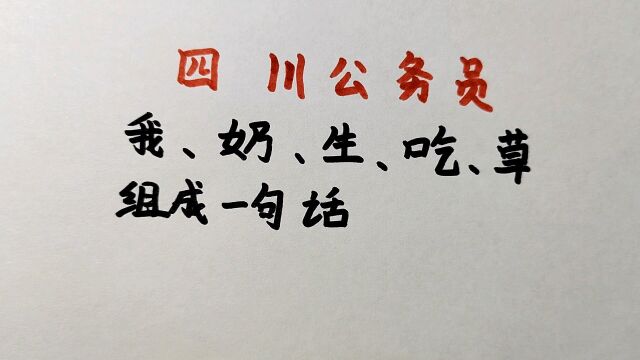 四川公务员
我、奶、生、吃、草
组成一句话